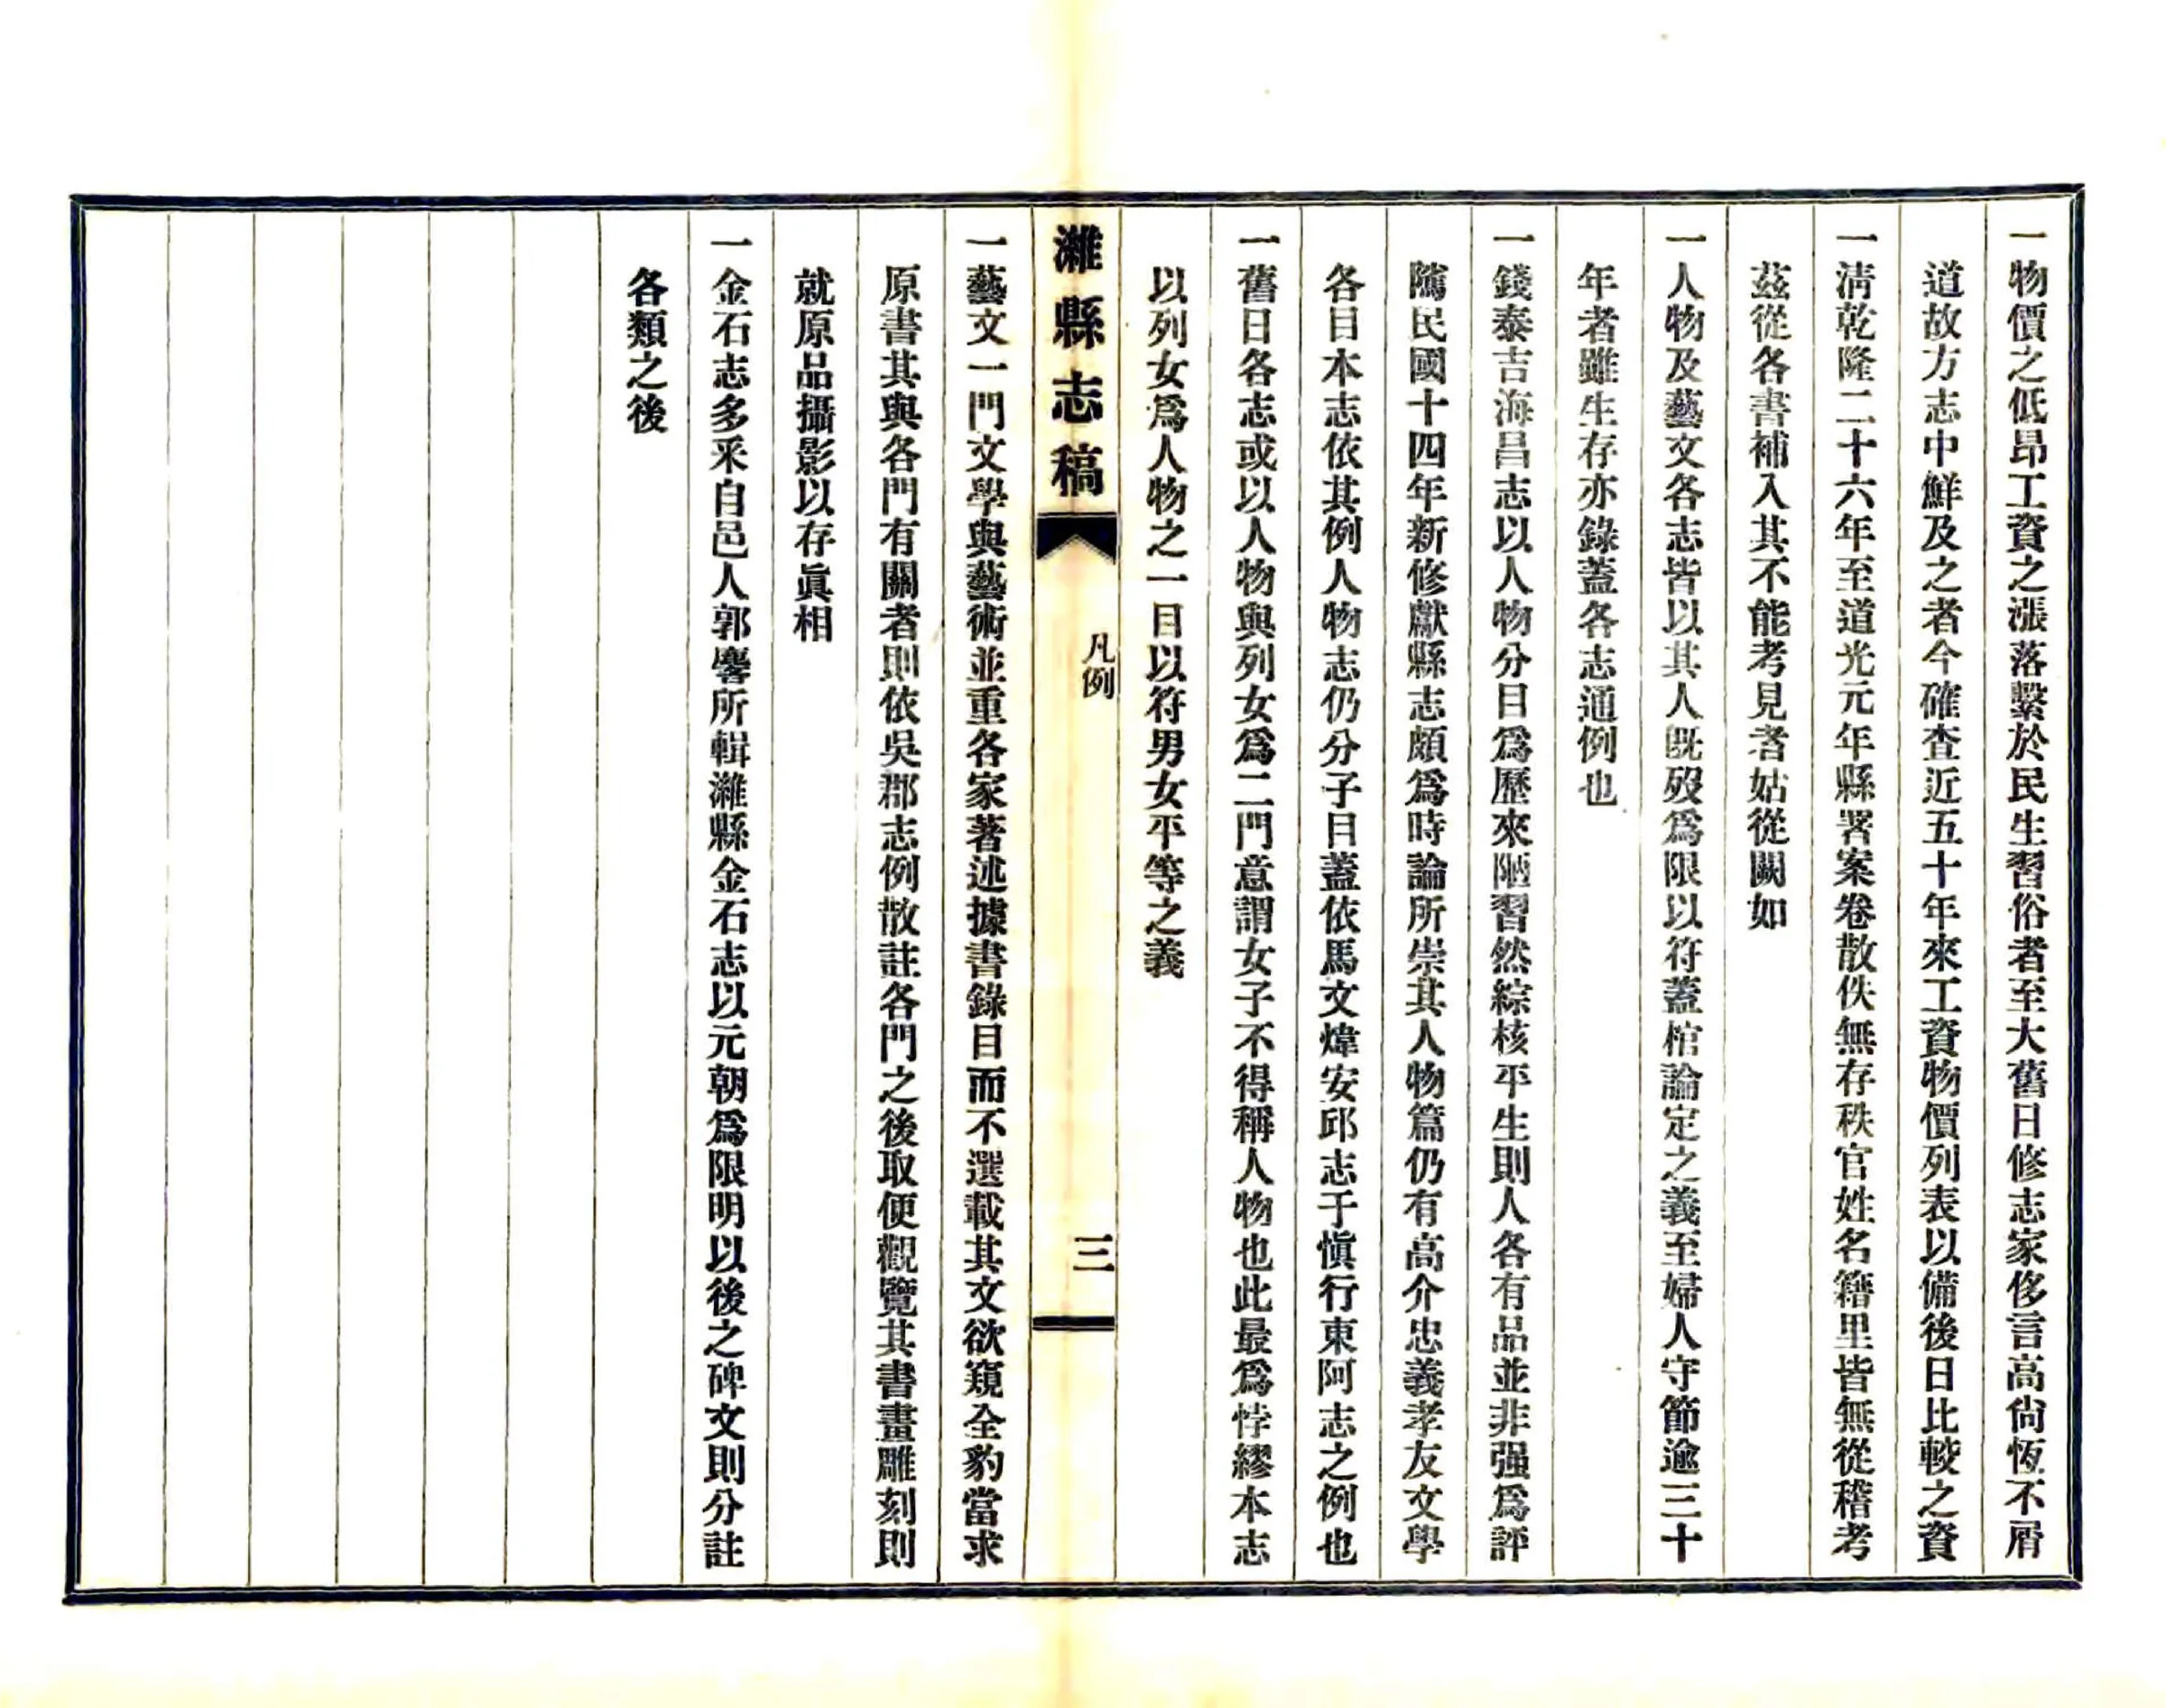 一物價之低昂工資之漲落繫於民生習俗者至大舊日修志家侈言高尙恆不屑
道故方志中鮮及之者今確查近五十年來工資物價列表以備後日比較之資
一淸乾隆二十六年至道光元年縣署案卷散佚無存秩官姓名籍里皆無從稽考
茲從各書補入其不能考見者姑從闕如
一人物及藝文各志皆以其人旣歿爲限以符蓋棺論定之義至婦人守節逾三十
年者雖生存亦錄蓋各志通例也
一錢泰吉海昌志以人物分目爲歷來陋習然綜核平生則人各有品並非强爲評
隲民國十四年新修獻縣志頗爲時論所崇其人物篇仍有高介忠義孝友文學
各目本志依其例人物志仍分子目蓋依馬文煒安邱志于愼行東阿志之例也
一舊日各志或以人物與列女爲二門意謂女子不得稱人物也此最爲悖繆本志
以列女爲人物之一目以符男女平等之義
濰縣志稿
凡例
三
一藝文一門文學與藝術並重各家著述據書錄目而不選載其文欲窺全豹當求
原書其與各門有關者則依吳郡志例散註各門之後取便觀覽其書畫雕刻則
就原品攝影以存眞相
一金石志多采自邑人郭麐所輯濰縣金石志以元朝爲限明以後之碑文則分註
各類之後